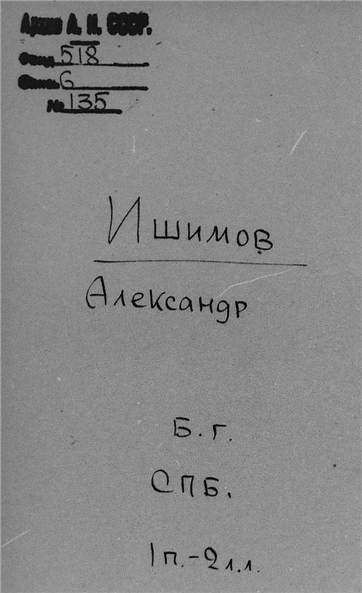 Архив А. Н. СССР.
Фонд 518
Опись 6
№ 135
Ишимов
Александр
Б. г.
СПБ.
1 п. - 2 л.л.